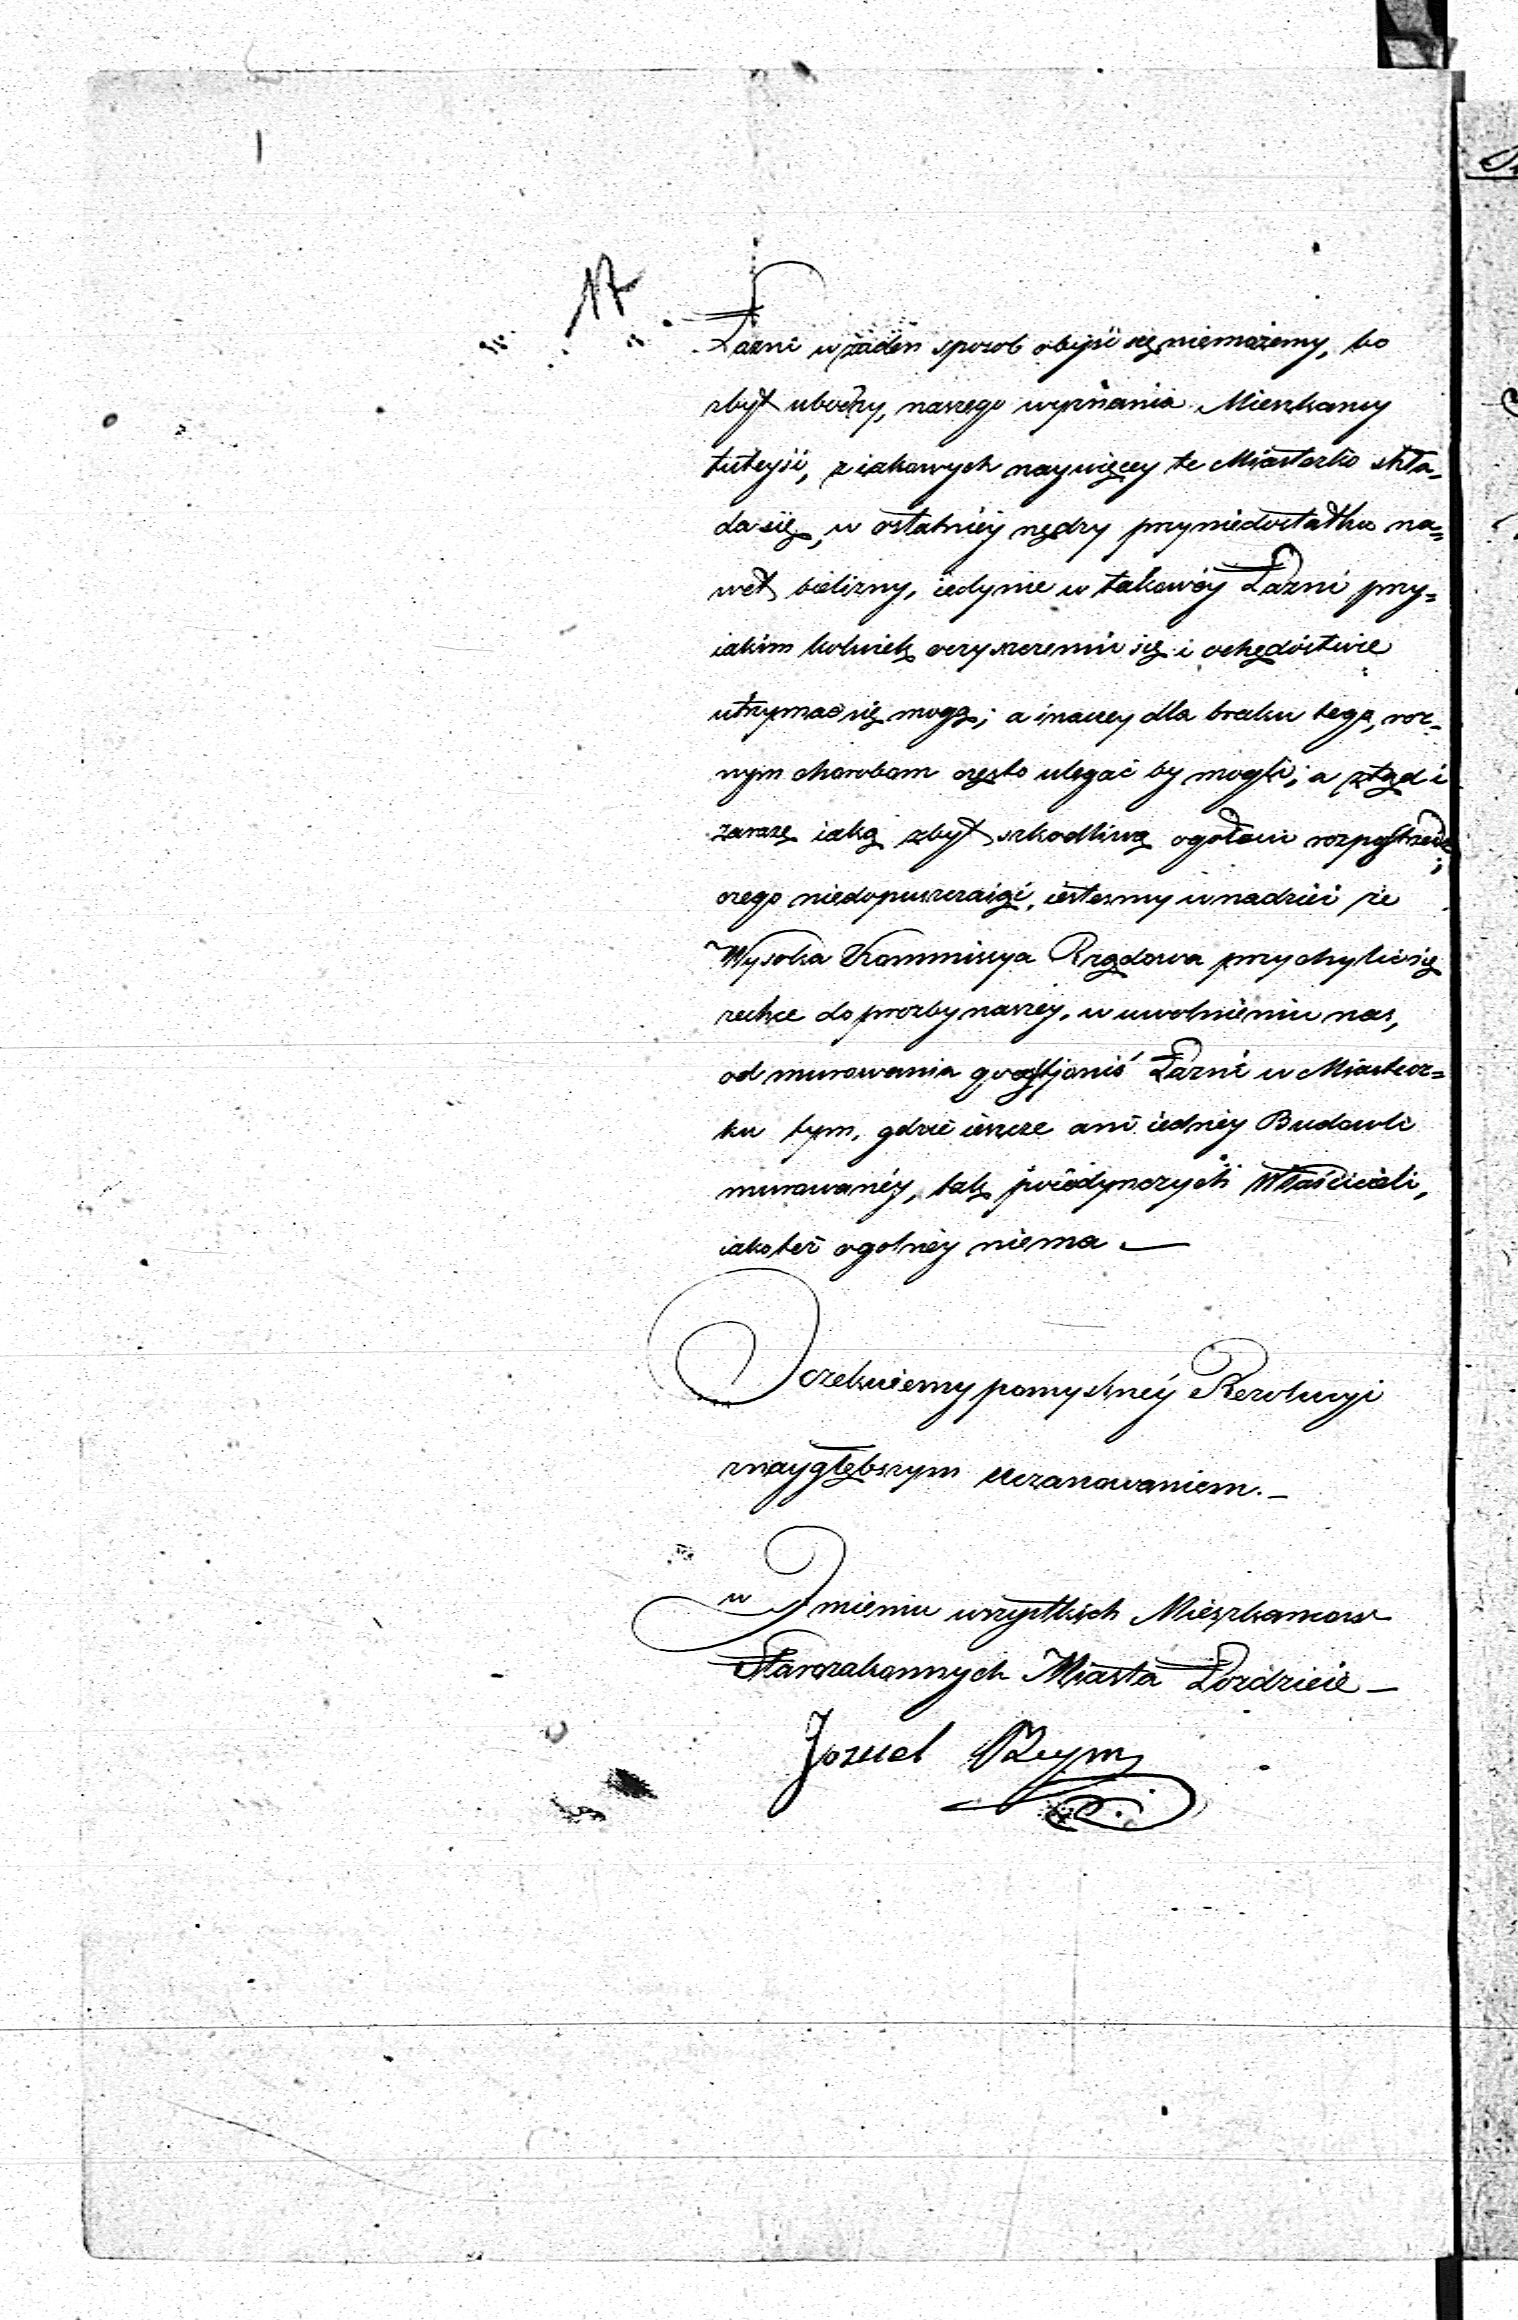 17
Łazni w żaden sposob obeysć się niemożemy, bo
zbyt ubodzy, naszego wyznania Mieszkancy
tuteysi, z iakowych naywięcey te Miasteczko skła„
da się, w ostatniéy nędzy przy niedostatku na„
wet bielizny, iedynie w takowéy Łazni przy„
iakim kolwiek oczyszczeniu się i ochędóstwie
utrzymać się mogą; a inaczey dla braku tego, roz„
nym chorobom często ulegać by mogli; a ztąd i
zarazę iaką zbyt szkodliwą ogołowi rozpostrzeć;
czego niedopuszczaiąc, iestesmy w nadziei że
Wysoka Kommissya Rządowa przychylić się
zechce do prozby naszey, w uwolnieniu nas,
od murowania qwestjonis Łazni w Miastecz„
ku tym, gdzie ieszcze ani iednéy Budowli
murowanéy, tak poiedynczych Właścicieli,
iako też ogolnéy niema —
Oczekuiemy pomyslnéy Rezolucyi
z naygłębszym Uszanowaniem. –
w Jmieniu wszystkich Mieszkancow
Starozakonnych Miasta Łozdzieie –
Jozuel